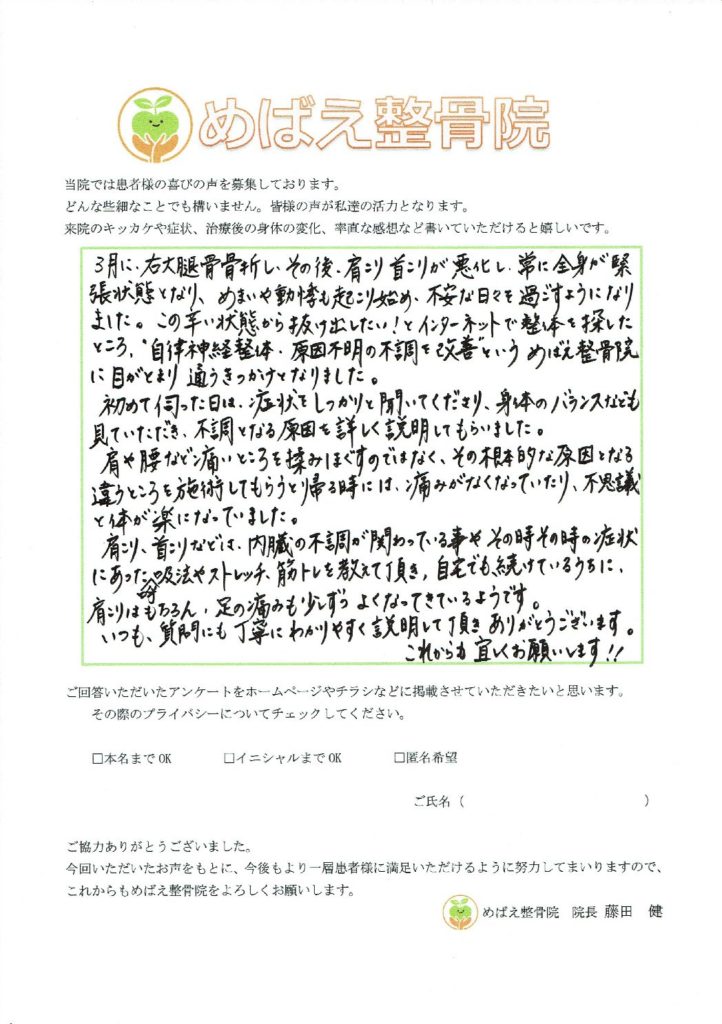 めばえ整骨院
当院では患者様の喜びの声を募集しております。
どんな些細なことでも構いません。皆様の声が私達の活力となります。
来院のキッカケや症状、治療後の身体の変化、率直な感想など書いていただけると嬉しいです。
3月に、右大腿骨骨折し、その後、肩こり首こりが悪化し、常に全身が緊
張状態となり、めまいや動悸も起こり始め、不安な日々を過ごすようになり
ました。この辛い状態から抜け出したい!とインターネットで整体を探した
ところ、“自律神経整体・原因不明の不調を改善”という めばえ整骨院
に目がとまり通うきっかけとなりました。
初めて伺った日は、症状をしっかりと聞いてくださり、身体のバランスなども
見ていただき、不調となる原因を詳しく説明してもらいました。
肩や腰など痛いところを揉みほぐすのではなく、その根本的な原因となる
違うところを施術してもらうとり帰る時には、痛みがなくなっていたり、不思議
と体が楽になっていました。
肩こり、首こりなどは、内臓の不調が関わっている事や その時その時の症状
にあった呼吸法やストレッチ、筋トレを教えて頂き、自宅でも続けているうちに、
肩こりはもちろん、足の痛みも少しずつ よくなってきているようです。
いつも、質問にも丁寧にわかりやすく説明して頂き ありがとうございます。
これからも宜しくお願いします!!
ご回答いただいたアンケートをホームページやチラシなどに掲載させていただきたいと思います。
その際のプライバシーについてチェックしてください。
□本名までOK □イニシャルまでOK □匿名希望
ご氏名( )
ご協力ありがとうございました。
今回いただいたお声をもとに、今後もより一層患者様に満足いただけるように努力してまいりますので、
これからもめばえ整骨院をよろしくお願いします。
めばえ整骨院 院長 藤田 健